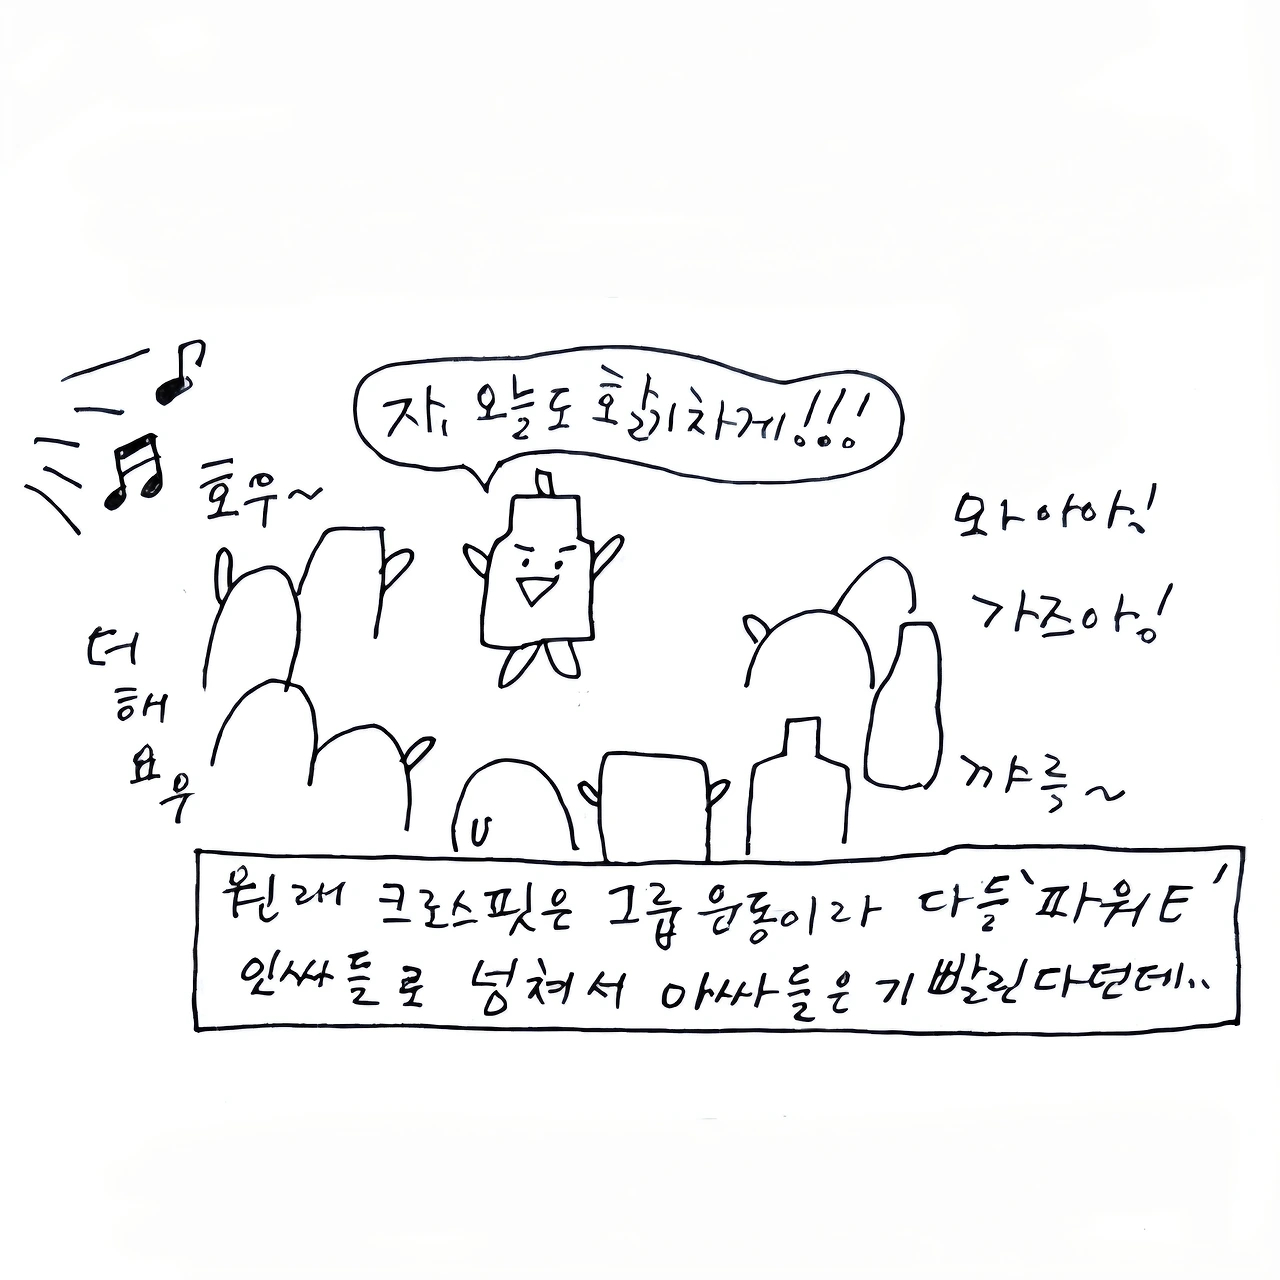 자, 오늘도 활기차게!!!
호우~
와아아!
가즈아!
더
해
요
우
꺄륵~
원래 크로스핏은 그룹운동이라 다들 '파워E'
인싸들로 넘쳐서 아싸들은 기빨린다던데..